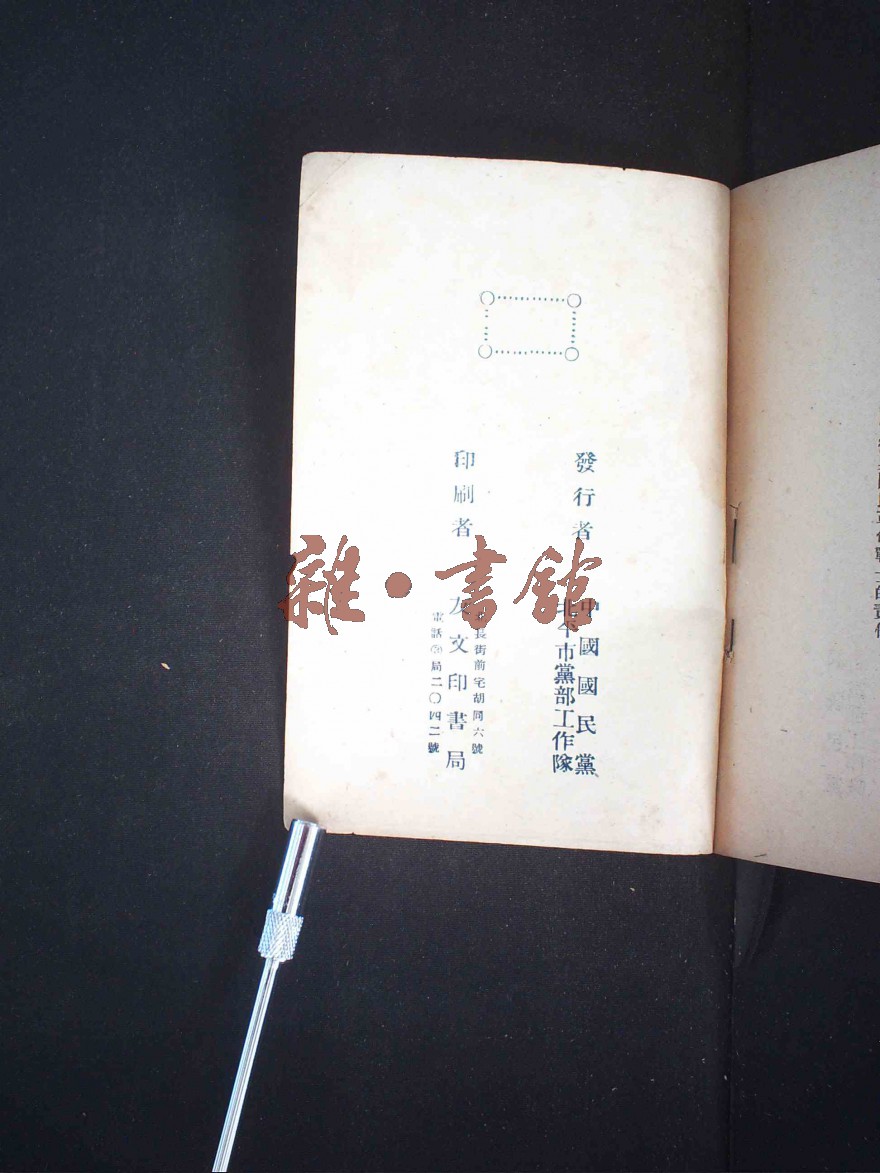 發行者
中國國民黨
北平市黨部工作隊
印刷者
長街前宅胡同六號
友文印書局
電話局二〇四二號
雜•書館